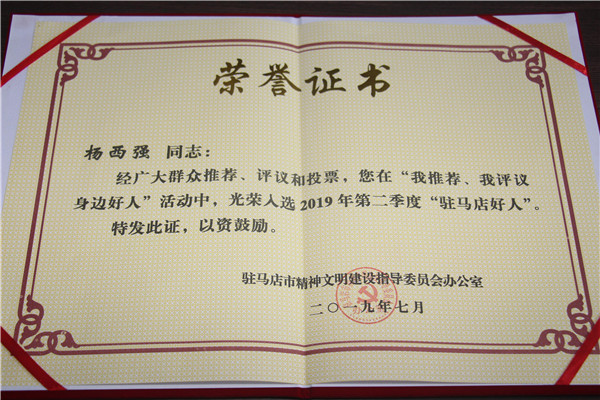 荣誉证书
杨西强 同志：
经广大群众推荐、评议和投票，您在“我推荐、我评议
身边好人”活动中，光荣入选2019年第二季度“驻马店好人”。
特发此证，以资鼓励。
驻马店市精神文明建设指导委员会办公室
二〇一九年七月